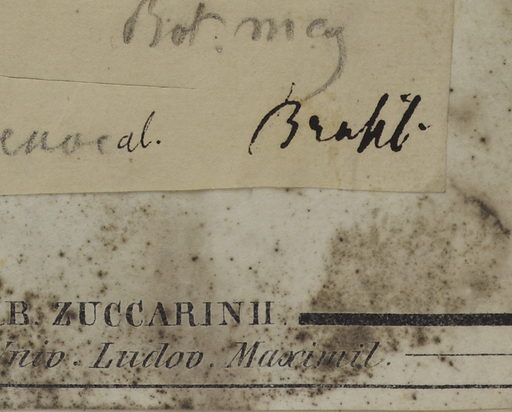 Bot. mag
al. Brasil.
RB. ZUCCARINII
Univ. Ludov. Maximil.